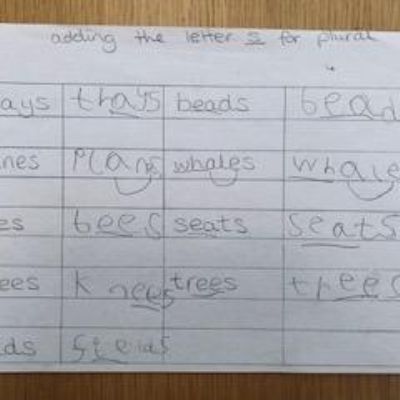 adding the letter s for plural
ays thays beads bead
nes Plans whales whale
es bees seats seats
ees knees trees trees
ds